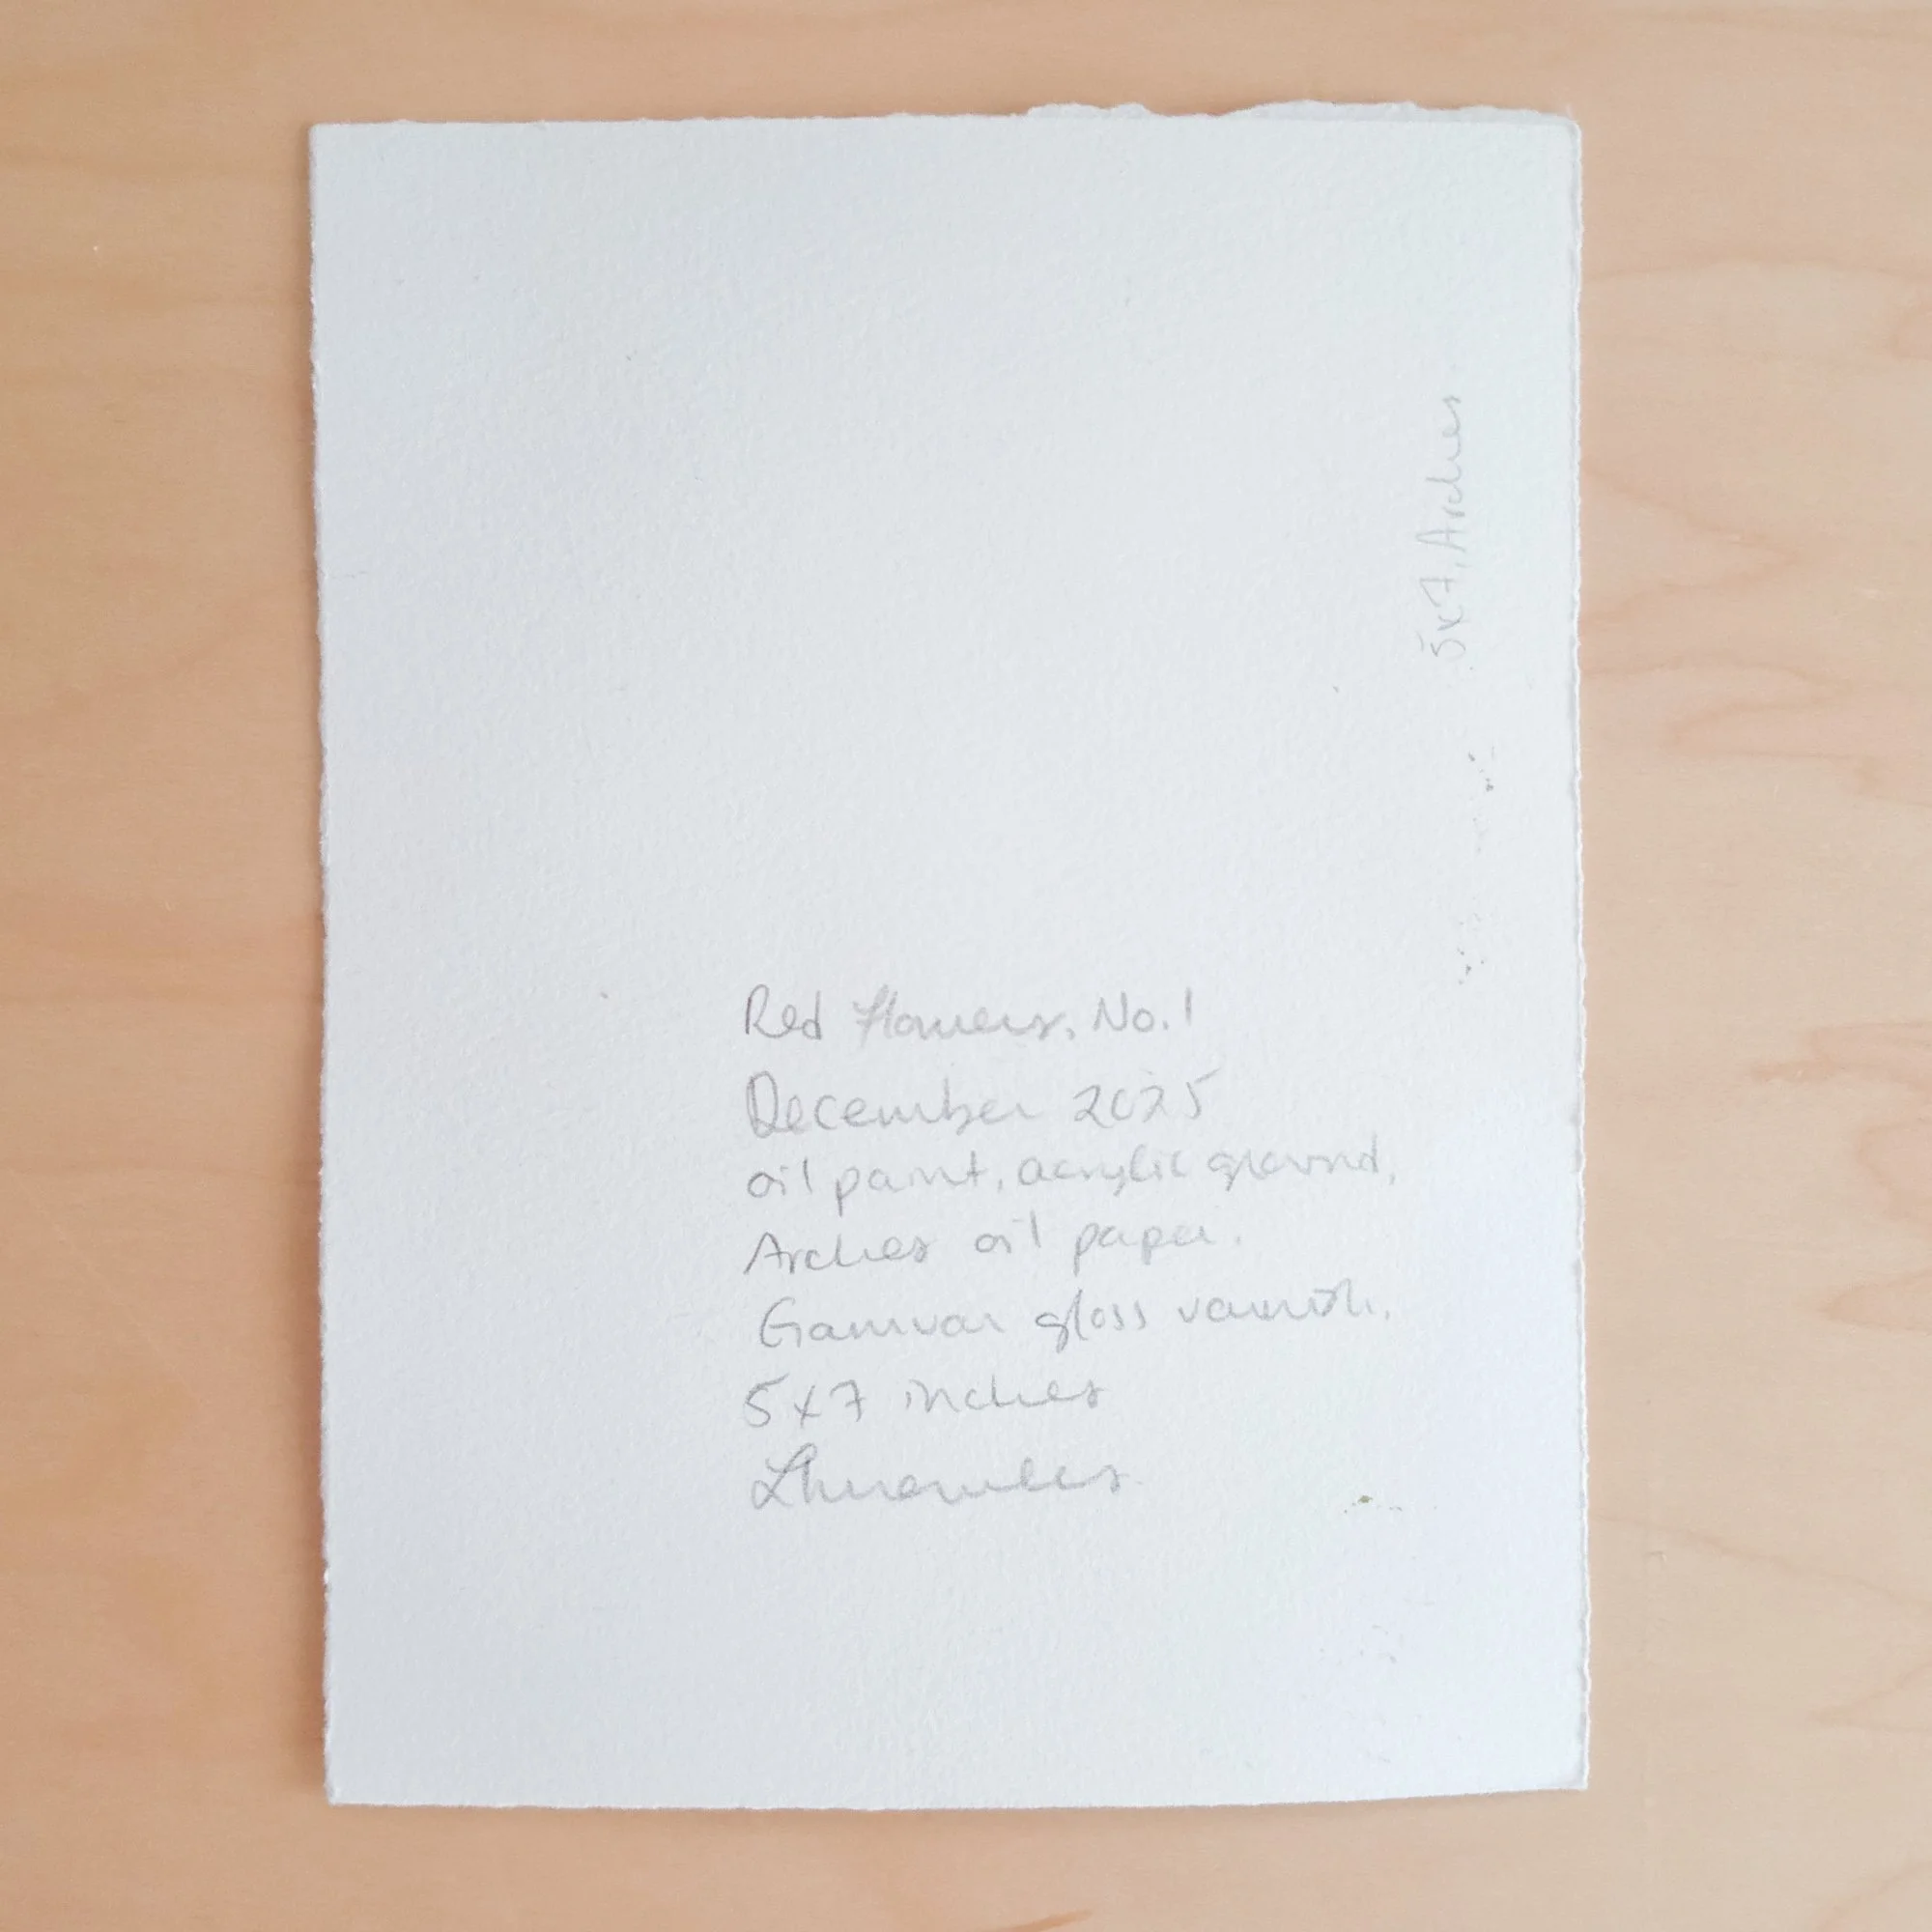 5x7, Arches
Red Flowers, No. 1
December 2025
oil paint, acrylic ground,
Arches oil paper.
Gamvar gloss varnish.
5x7 inches